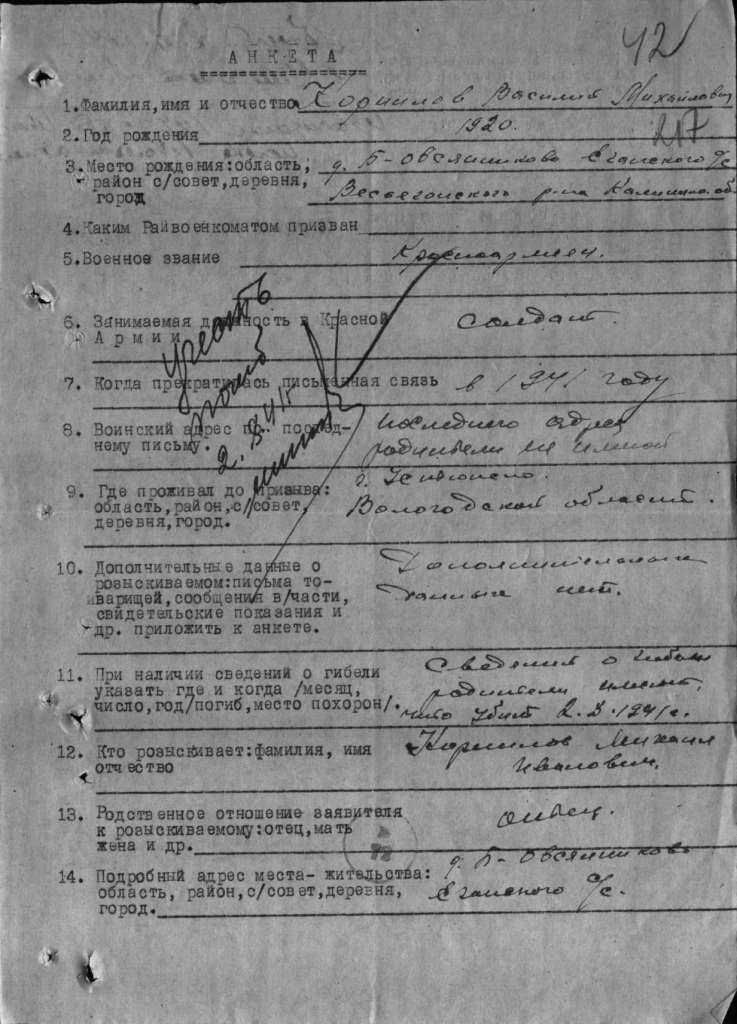 42
АНКЕТА
1.Фамилия,имя и отчество Кормилов Василий Михайлович
2.Год рождения 1920.
217
3.Место рождения:область, д. Б-Овсяниково Еганского с/с
район с/совет,деревня, Весьегонского р-на Калинин. об.
город
4.Каким Райвоенкоматом призван
5.Военное звание Красноармеец.
6. Занимаемая должность в Красной солдат.
Армии
7. Когда прекратилась письменная связь в 1941 году
8. Воинский адрес по послед- последнего адреса
нему письму. родители не имеют
9. Где проживал до призыва: г. Устюжено.
область,район,с/совет, Вологодской области.
деревня,город.
10. Дополнительные данные о Дополнительных
розыскиваемом:письма то- данных нет.
варищей,сообщения в/части,
свидетельские показания и
др. приложить к анкете.
11. При наличии сведений о гибели Сведения о гибели
указать где и когда /месяц, родители имеют,
число,год/погиб,место похорон/. что убит 2.X.1941г.
12. Кто розыскивает:фамилия, имя Кормилов Михаил
отчество Иванович.
13. Родственное отношение заявителя отец.
к розыскиваемому:отец,мать
жена и др.
14. Подробный адрес места-жительства: д. Б-Овсяниково
область, район,с/совет,деревня, Еганского с/с.
город.
учесть
погиб